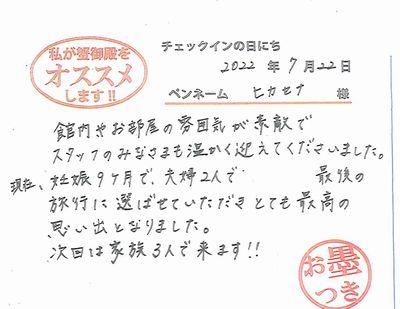 私が蟹御殿を
オススメ
します!!
チェックインの日にち
2022 年 7 月 22 日
ペンネーム ヒカセナ 様
館内やお部屋の雰囲気が素敵で
スタッフのみなさまも温かく迎えてくださいました。
現在、妊娠9ヶ月で、夫婦2人で 最後の
旅行に選ばせていただきとても最高の
思い出となりました。
次回は家族3人で来ます!!
お墨つき